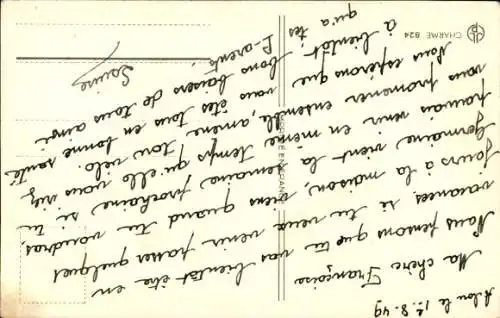 CHARME 824
Arlon le 1er.8.49
Ma chère Françoise
Nous pensons que tu vas bientôt être en
vacances si tu veux venir passer quelques
jours à la maison, viens quand tu voudras,
Germaine vient la semaine prochaine si tu
pouvais venir en même temps qu'elle vous
vous promener ensemble, amène ton vélo.
Nous espérons que vous êtes tous en bonne santé
à bientôt, bons baisers de tous ainsi
qu'à tes Parents.